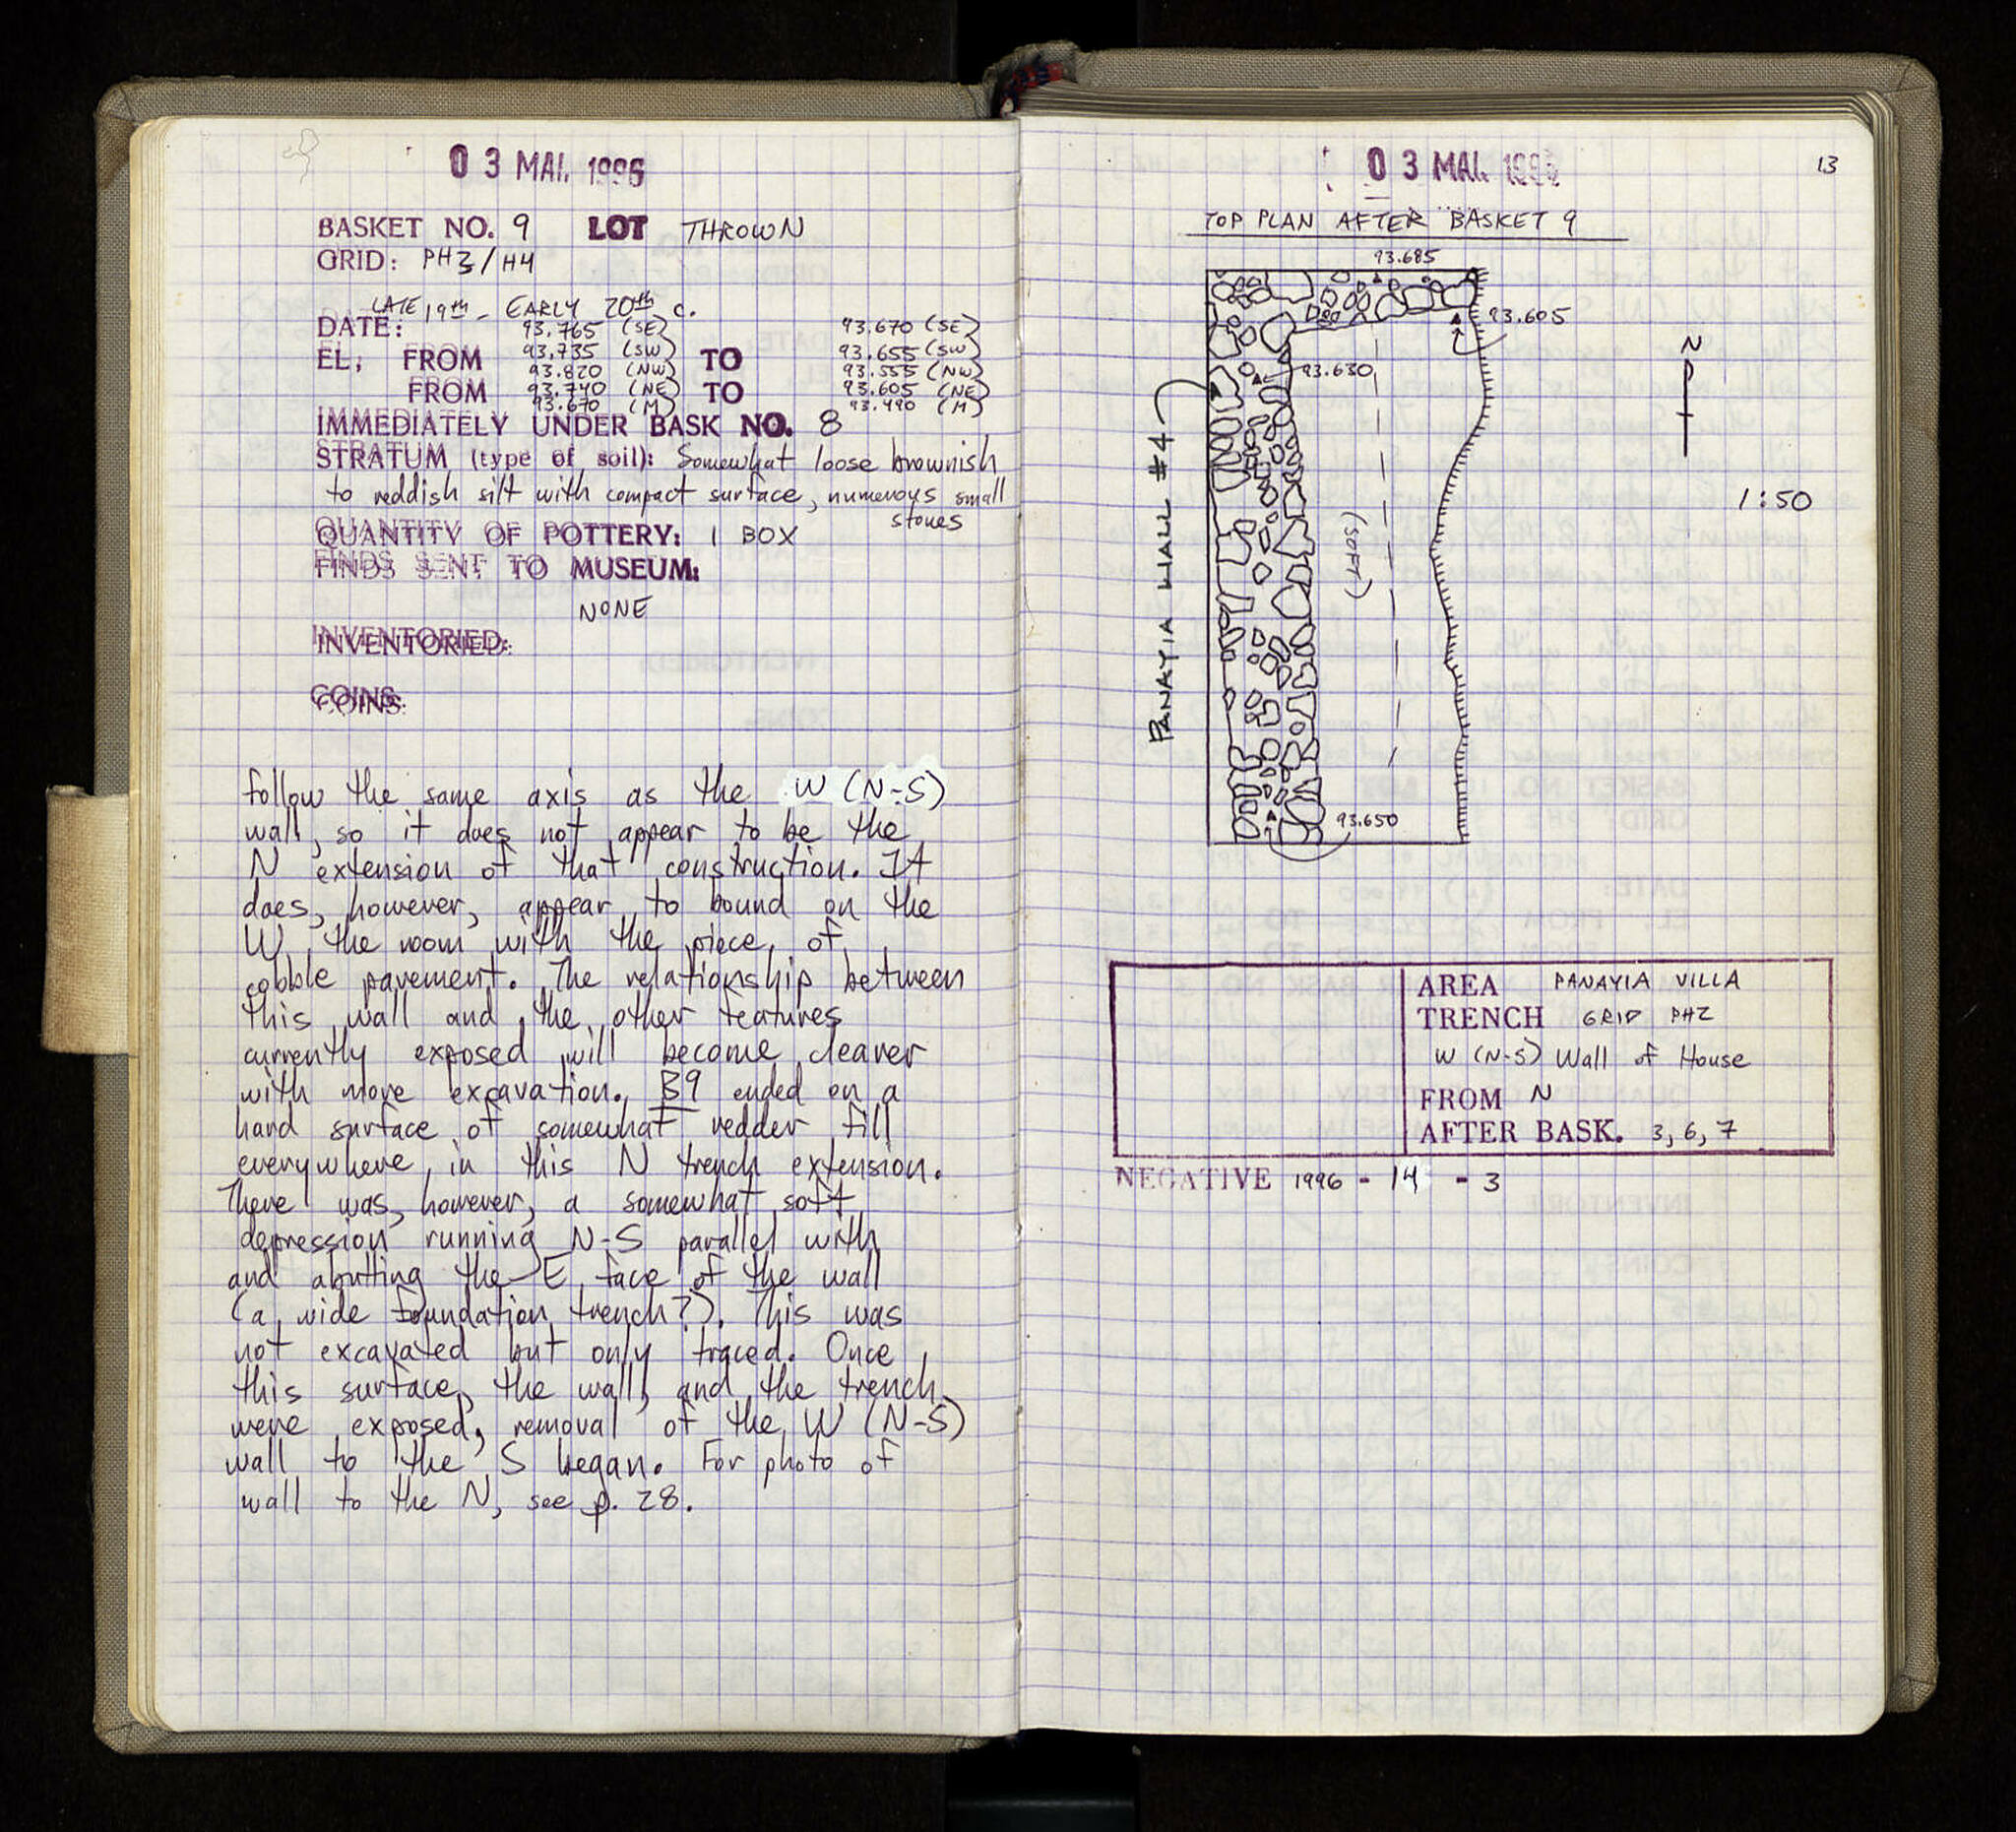 03 MAI. 1996
BASKET NO. 9 LOT THROWN
GRID: PH3/H4
LATE 19th - EARLY 20th c.
DATE:
93.765 (SE) 93.670 (SE)
93.735 (SW) 93.655 (SW)
EL, FROM TO
93.820 (NW) 93.555 (NW)
93.740 (NE) 93.605 (NE)
FROM TO
93.670 (M) 93.490 (M)
IMMEDIATELY UNDER BASK NO. 8
STRATUM (type of soil): Somewhat loose brownish
to reddish silt with compact surface, numerous small
stones
QUANTITY OF POTTERY: 1 BOX
FINDS SENT TO MUSEUM:
NONE
INVENTORIED:
COINS:
follow the same axis as the W (N-S)
wall, so it does not appear to be the
N extension of that construction. It
does, however, appear to bound on the
W the room with the piece of
cobble pavement. The relationship between
this wall and the other features
currently exposed will become clearer
with more excavation. B9 ended on a
hard surface of somewhat redder fill
everywhere in this N trench extension.
There was, however, a somewhat soft
depression running N-S parallel with
and abutting the E face of the wall
(a wide foundation trench?). This was
not excavated but only traced. Once
this surface, the wall, and the trench
were exposed, removal of the W (N-S)
wall to the S began. For photo of
wall to the N, see p. 28.
03 MAI. 1996
13
TOP PLAN AFTER BASKET 9
93.685
93.605
N
93.630
1:50
PANAYIA WALL #4
(SOFT)
93.650
AREA PANAYIA VILLA
TRENCH GRID PH2
W (N-S) Wall of House
FROM N
AFTER BASK. 3, 6, 7
NEGATIVE 1996 - 14 - 3